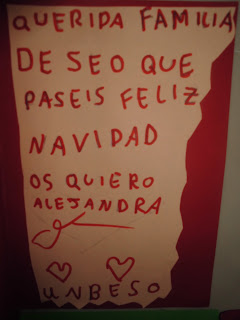 QUERIDA FAMILIA
DESEO QUE
PASEIS FELIZ
NAVIDAD
OS QUIERO
ALEJANDRA
UNBESO